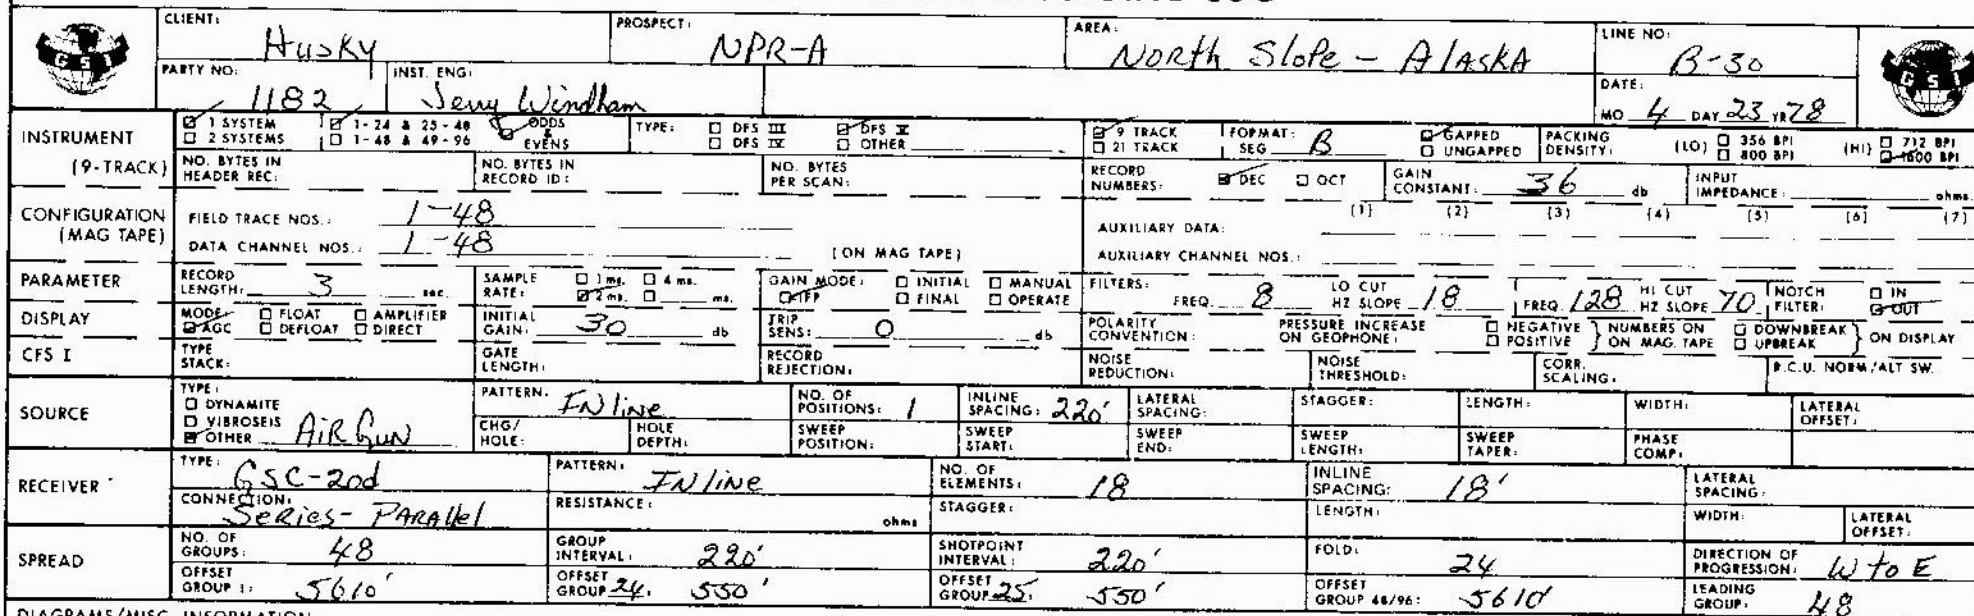 CLIENT: Husky PROSPECT: NPR-A AREA: North Slope - Alaska LINE NO: B-30
GSI
PARTY NO: 1182 INST. ENG: Jerry Windham DATE: MO 4 DAY 23 YR 78
GSI
INSTRUMENT (9-TRACK)
☑ 1 SYSTEM ☑ 1-24 & 25-48 ☑ ODDS & EVENS TYPE: ☐ DFS III ☑ DFS V ☑ 9 TRACK FORMAT: SEG B ☑ GAPPED PACKING DENSITY: (LO) ☐ 356 BPI (HI) ☐ 712 BPI
☐ 2 SYSTEMS ☐ 1-48 & 49-96 ☐ DFS IV ☐ OTHER ☐ 21 TRACK ☐ UNGAPPED ☐ 800 BPI ☑ 1600 BPI
NO. BYTES IN HEADER REC: NO. BYTES IN RECORD ID: NO. BYTES PER SCAN: RECORD NUMBERS: ☑ DEC ☐ OCT GAIN CONSTANT: 36 db INPUT IMPEDANCE: ohms.
CONFIGURATION (MAG TAPE)
FIELD TRACE NOS.: 1-48 AUXILIARY DATA: (1) (2) (3) (4) (5) (6) (7)
DATA CHANNEL NOS.: 1-48 (ON MAG TAPE) AUXILIARY CHANNEL NOS.:
PARAMETER RECORD LENGTH: 3 sec. SAMPLE RATE: ☐ 1 ms. ☐ 4 ms. ☑ 2 ms. ☐ ms. GAIN MODE: ☐ INITIAL ☐ MANUAL ☑ IFP ☐ FINAL ☐ OPERATE FILTERS: FREQ. 8 LO CUT HZ SLOPE 18 FREQ. 128 HI CUT HZ SLOPE 70 NOTCH FILTER: ☐ IN ☑ OUT
DISPLAY MODE: ☐ FLOAT ☐ AMPLIFIER ☑ AGC ☐ DEFLOAT ☐ DIRECT INITIAL GAIN: 30 db TRIP SENS: 0 db POLARITY CONVENTION: PRESSURE INCREASE ON GEOPHONE: ☐ NEGATIVE ☐ POSITIVE } NUMBERS ON MAG. TAPE ☐ DOWNBREAK ☐ UPBREAK } ON DISPLAY
CFS I TYPE STACK: GATE LENGTH: RECORD REJECTION: NOISE REDUCTION: NOISE THRESHOLD: CORR. SCALING: R.C.U. NORM/ALT SW.
SOURCE
TYPE: ☐ DYNAMITE ☐ VIBROSEIS ☑ OTHER Air Gun PATTERN. INline NO. OF POSITIONS: 1 INLINE SPACING: 220' LATERAL SPACING: STAGGER: LENGTH: WIDTH: LATERAL OFFSET:
CHG/HOLE: HOLE DEPTH: SWEEP POSITION: SWEEP START: SWEEP END: SWEEP LENGTH: SWEEP TAPER: PHASE COMP:
RECEIVER TYPE: GSC-20d PATTERN: INline NO. OF ELEMENTS: 18 INLINE SPACING: 18' LATERAL SPACING:
CONNECTION: Series-Parallel RESISTANCE: ohms STAGGER: LENGTH: WIDTH: LATERAL OFFSET:
SPREAD NO. OF GROUPS: 48 GROUP INTERVAL: 220' SHOTPOINT INTERVAL: 220' FOLD: 24 DIRECTION OF PROGRESSION: W to E
OFFSET GROUP 1: 5610' OFFSET GROUP 24: 550' OFFSET GROUP 25: 550' OFFSET GROUP 48/96: 5610' LEADING GROUP: 48
DIAGRAMS/MISC. INFORMATION